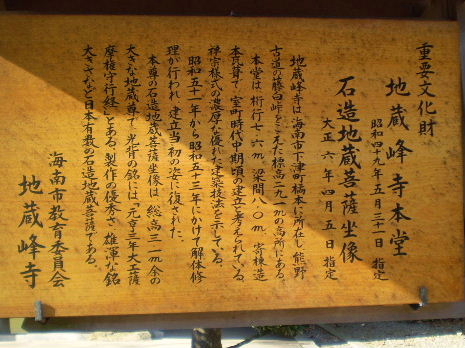 重要文化財
地蔵峰寺本堂
昭和四九年五月三十一日 指定
石造地蔵菩薩坐像
大正六年四月五日 指定
地蔵峰寺は海南市下津町橘本に所在し、熊野
古道の藤白峠をこえた標高二九一mの高所にある。
本堂は、桁行七・六m、梁間八・〇m、寄棟造
本瓦葺で、室町時代中期頃の建立と考えられている。
禅宗様式の濃厚な優れた建築技法を示している。
昭和五十一年から昭和五十三年にかけて解体修
理が行われ、建立当初の姿に復された。
本尊の石造地蔵菩薩坐像は、総高三・一m余の
大きな地蔵尊で、光背の銘には、「元亨三年大工薩
摩権守行経」とある。製作の優秀さ、雄渾な銘
大きさなど日本有数の石造地蔵菩薩である。
海南市教育委員会
地蔵峰寺